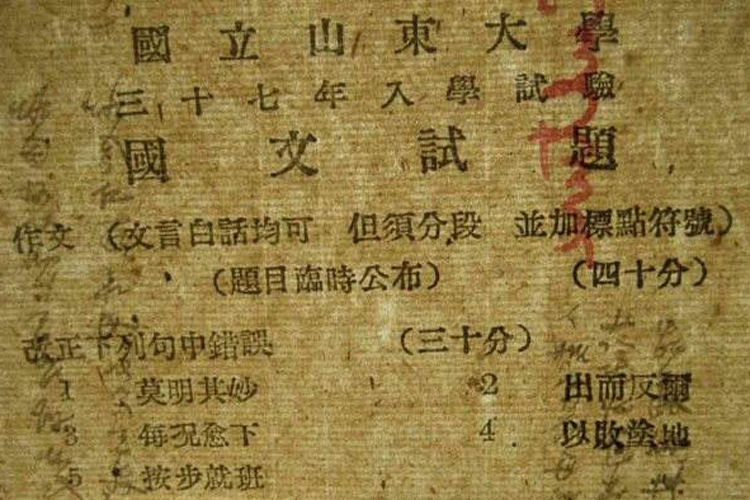 國立山東大學
三十七年入學試驗
國文試題
作文（文言白話均可 但須分段 並加標點符號）
（題目臨時公布） （四十分）
改正下列句中錯誤 （三十分）
1 莫明其妙 2 出而反爾
3 每況愈下 4 以敗塗地
5 按步就班